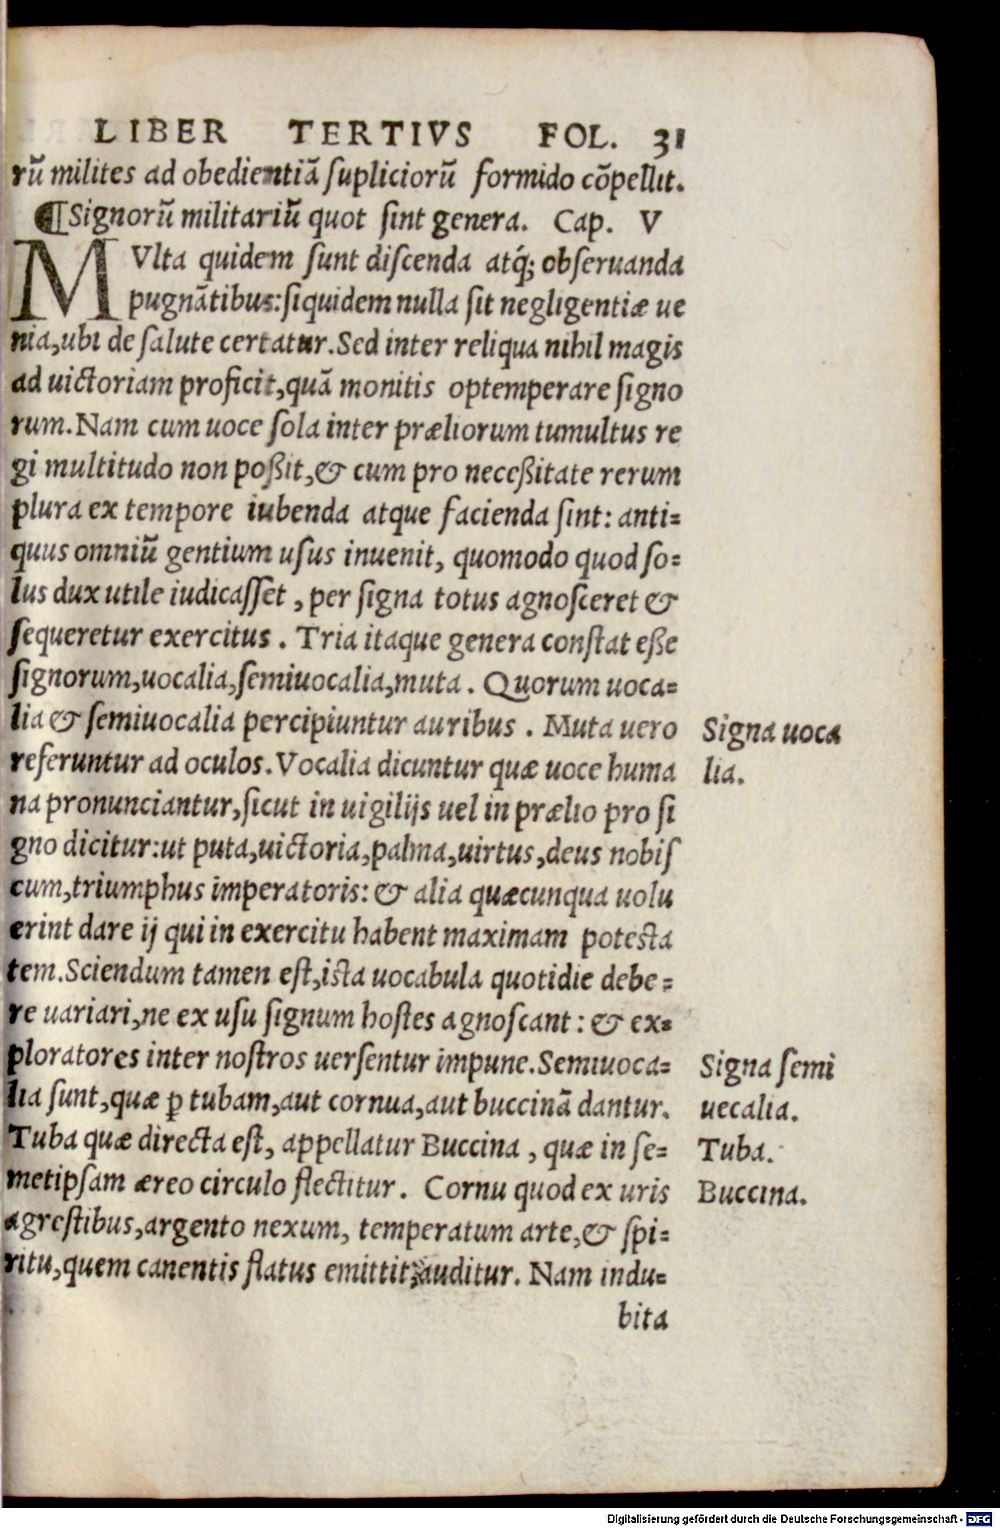 LIBER TERTIVS FOL. 31
rũ milites ad obedientiã ſupliciorũ formido cõpellit.
¶Signorũ militariũ quot ſint genera. Cap. V
MVlta quidem ſunt diſcenda atq́; obſeruanda
pugnãtibus:ſiquidem nulla ſit negligentiæ ue
nia,ubi de ſalute certatur.Sed inter reliqua nihil magis
ad uictoriam proficit,quã monitis optemperare ſigno
rum.Nam cum uoce ſola inter præliorum tumultus re
gi multitudo non poßit,& cum pro neceßitate rerum
plura ex tempore iubenda atque facienda ſint: anti=
quus omniũ gentium uſus inuenit, quomodo quod ſo=
lus dux utile iudicaſſet, per ſigna totus agnoſceret &
ſequeretur exercitus. Tria itaque genera conſtat eße
ſignorum,uocalia,ſemiuocalia,muta. Quorum uoca=
lia & ſemiuocalia percipiuntur auribus. Muta uero
Signa uoca
referuntur ad oculos.Vocalia dicuntur quæ uoce huma
lia.
na pronunciantur,ſicut in uigilijs uel in prælio pro ſi
gno dicitur:ut puta,uictoria,palma,uirtus,deus nobiſ
cum,triumphus imperatoris: & alia quæcunqua uolu
erint dare ij qui in exercitu habent maximam poteſta
tem.Sciendum tamen eſt,iſta uocabula quotidie debe=
re uariari,ne ex uſu ſignum hoſtes agnoſcant: & ex=
ploratores inter noſtros uerſentur impune.Semiuoca=
Signa ſemi
lia ſunt,quæ ꝑ tubam,aut cornua,aut buccinã dantur.
uecalia.
Tuba quæ directa eſt, appellatur Buccina, quæ in ſe=
Tuba.
metipſam æreo circulo flectitur. Cornu quod ex uris
Buccina.
agreſtibus,argento nexum, temperatum arte,& ſpi=
ritu,quem canentis flatus emittit,auditur. Nam indu=
bita
Digitalisierung gefördert durch die Deutsche Forschungsgemeinschaft - DFG